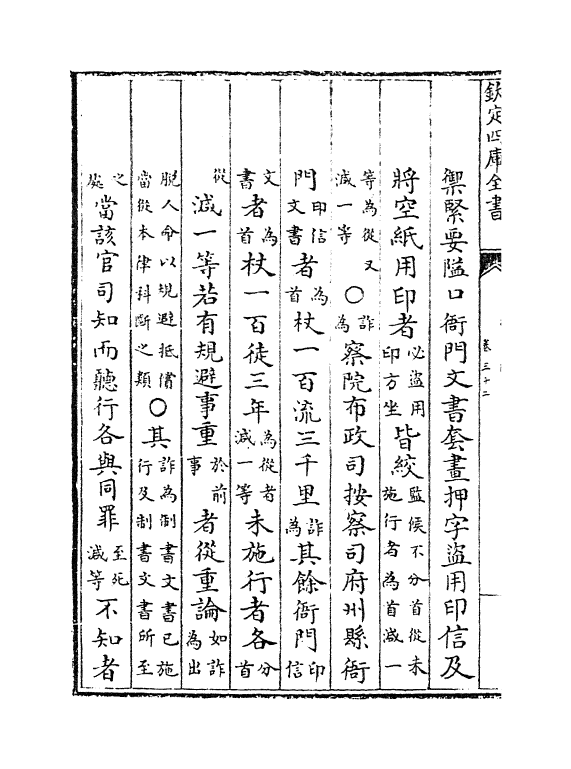 欽定四庫全書
卷三十二
禦緊要隘口衙門文書套畫押字盜用印信及
將空紙用印者必盜用印方坐皆絞監候不分首從未施行者為首減一
等為從又減一等○詐為察院布政司按察司府州縣衙
門印信文書者為首杖一百流三千里詐為其餘衙門印信
文書者為首杖一百徒三年為從者減一等未施行者各分首
從減一等若有規避事重於前事者從重論如詐為出
脫人命以規避抵償當從本律科斷之類○其詐為制書文書已施行及制書文書所至
之處當該官司知而聽行各與同罪至死減等不知者